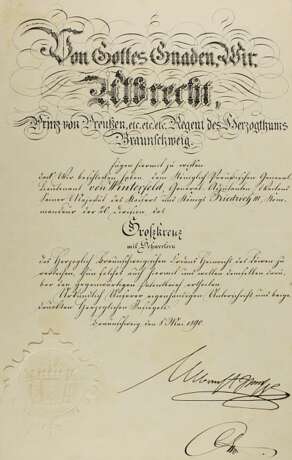 Von Gottes Gnaden, Wir,
Albrecht,
Prinz von Preußen, etc. etc. etc. Regent des Herzogthums
Braunschweig.
fügen hiermit zu wissen
daß Wir beschlossen haben, dem Königlich Preußischen General
Lieutenant von Winterfeld, General Adjutanten
Seiner Majestät des Kaisers und Königs Friedrich III,
der 20. Division das
Großkreuz
mit Schwertern
des Herzoglich Braunschweigischen Ordens Heinrichs des Löwen zu
verleihen. Wir hiermit und wollen demselben
den gegenwärtigen Patentbrief ertheilen
Urkundlich Unserer eigenhändigen Unterschrift und beige-
druckten Herzoglichen Insiegels.
Braunschweig den Mai 1890.